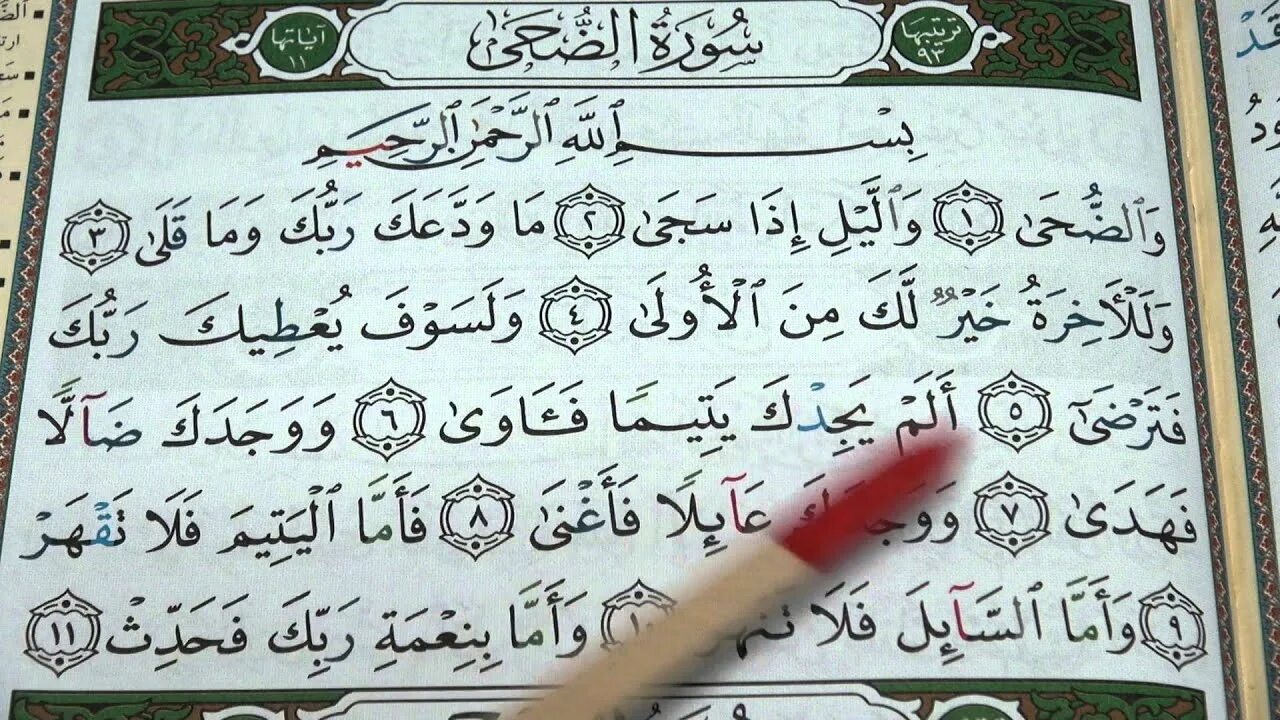 آياتها ١١ سُورَةُ الضُّحَىٰ ترتيبها ٩٣
بِسْمِ ٱللَّهِ ٱلرَّحْمَٰنِ ٱلرَّحِيمِ
وَٱلضُّحَىٰ ١ وَٱلَّيْلِ إِذَا سَجَىٰ ٢ مَا وَدَّعَكَ رَبُّكَ وَمَا قَلَىٰ ٣
وَلَلْأَخِرَةُ خَيْرٌ لَّكَ مِنَ ٱلْأُولَىٰ ٤ وَلَسَوْفَ يُعْطِيكَ رَبُّكَ
فَتَرْضَىٰٓ ٥ أَلَمْ يَجِدْكَ يَتِيمًا فَـَٔاوَىٰ ٦ وَوَجَدَكَ ضَآلًّا
فَهَدَىٰ ٧ عَآئِلًا فَأَغْنَىٰ ٨ فَأَمَّا ٱلْيَتِيمَ فَلَا تَقْهَرْ
٩ وَأَمَّا ٱلسَّآئِلَ فَلَا وَأَمَّا بِنِعْمَةِ رَبِّكَ فَحَدِّثْ ١١